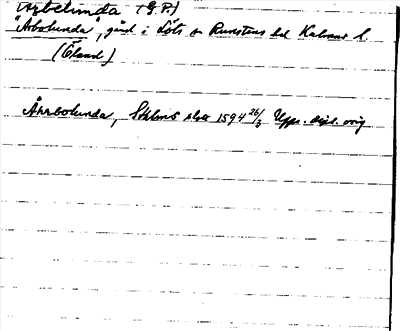 Arbelunda (G.P.)
"Arbolunda", gård i Löts sn Runstens hd Kalmar l.
(Öland)
Ährbolunda, Sthlms slott 1594 26/3 Upps. dipl. orig